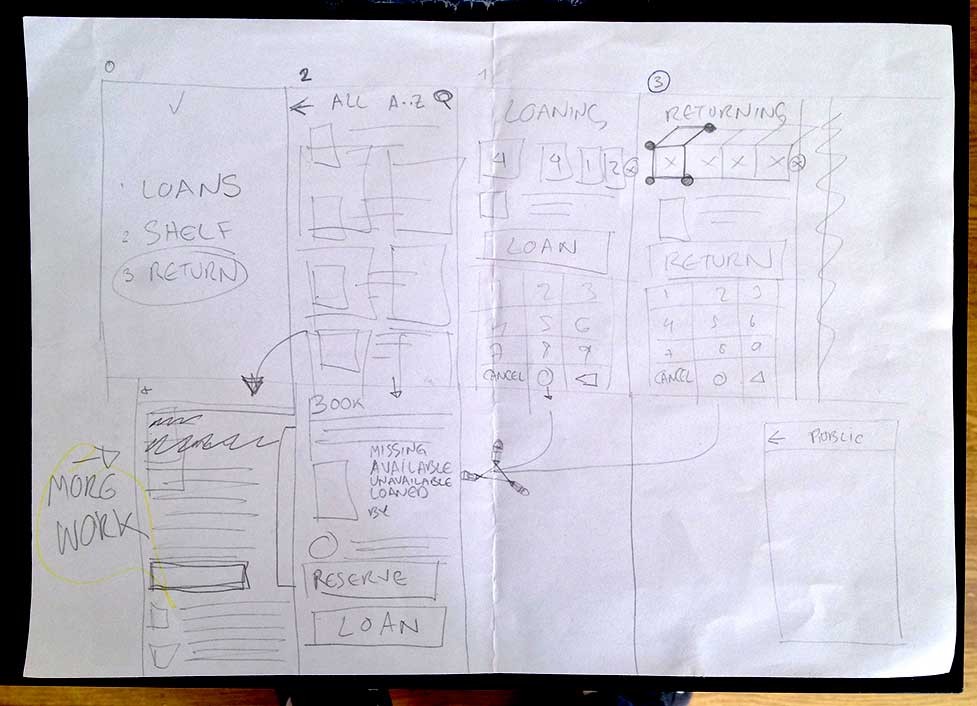 0
1 LOANS
2 SHELF
3 RETURN
2
← ALL A..Z
1
LOANING
4 4 1 2 x
LOAN
2 3
5 6
8 9
CANCEL 0
3
RETURNING
x x x x
RETURN
1 2 3
4 5 6
7 8 9
CANCEL 0
MORE
WORK
BOOK
MISSING
AVAILABLE
UNAVAILABLE
LOANED
BY
RESERVE
LOAN
← PUBLIC